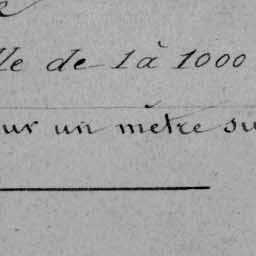 lle de 1 à 1000
our un mètre su